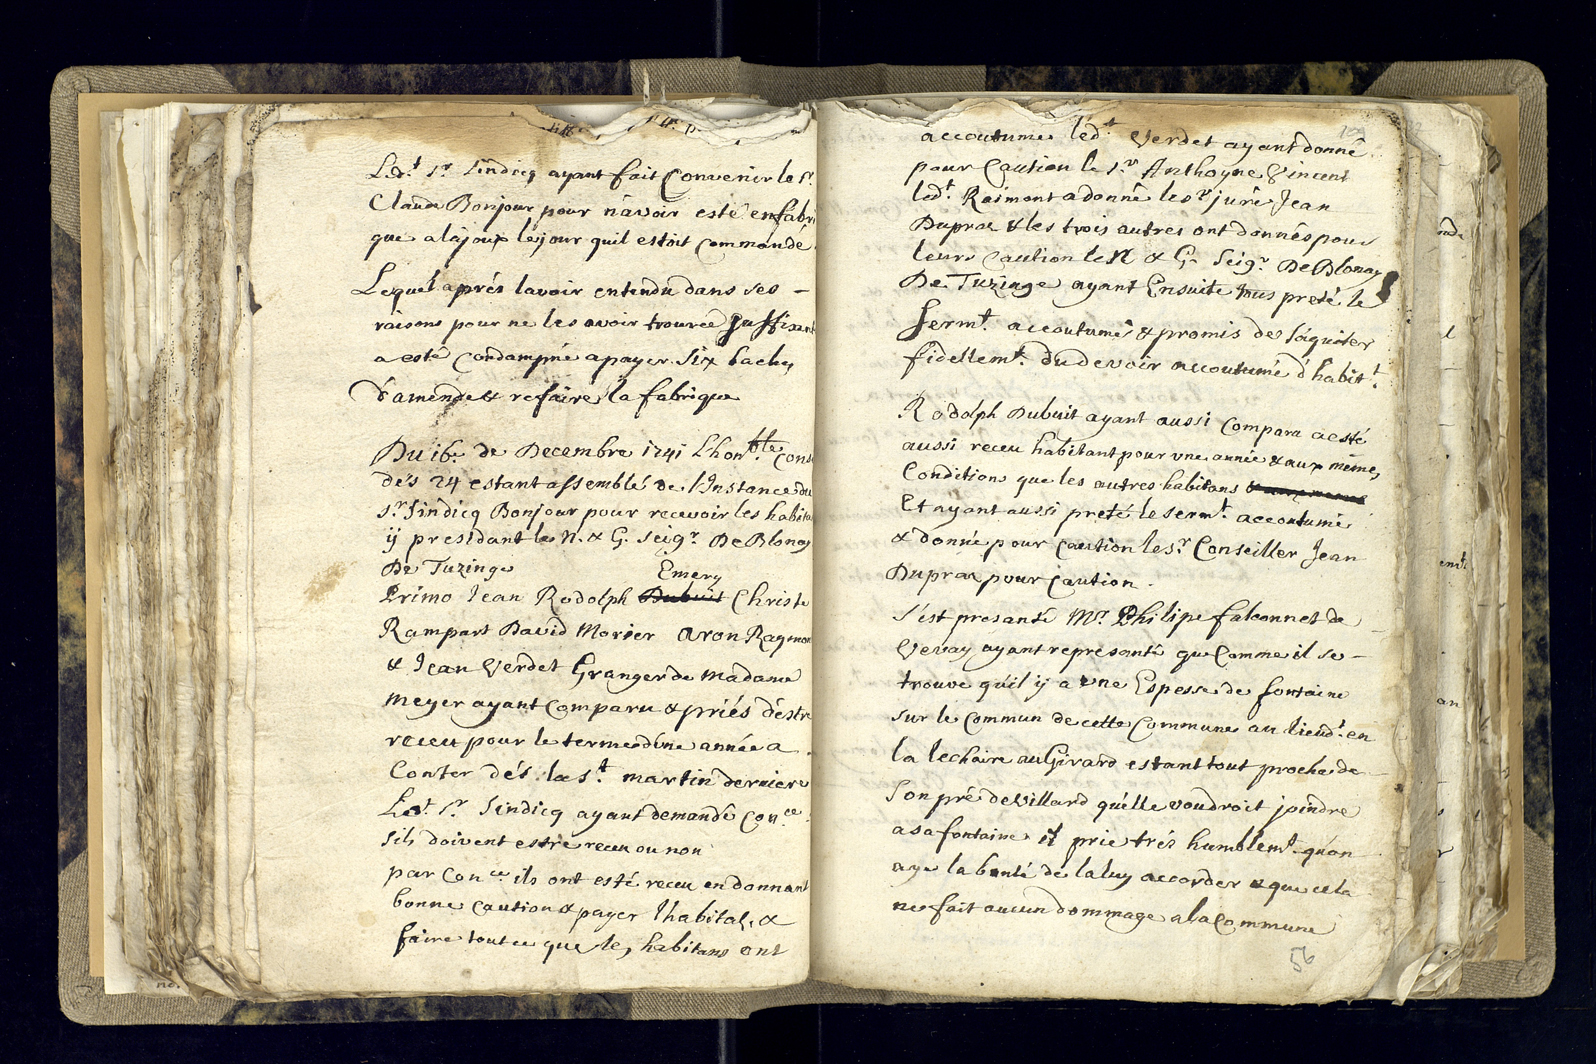 Led.t S.r Sindicq ayant fait Convenir le S.r
Claude Bonjour pour n'avoir esté en fabri
que a lajoux le jour quil estoit Commandé
Lequel aprés lavoir entendu dans ses –
raisons pour ne les avoir trouvée Suffisant
a esté Condampné a payer Six baches
D'amende & refaire la fabrique
Du 16.e de Decembre 1741 L'hon.ble Cons
dés 24 estant assemblé de l'Instance du
S.r Sindicq Bonjour pour recevoir les habita
ij presidant le N. & G. Seig.r De Blonay
De Tuzinge
Emery
Primo Jean Rodolph Dubuit Christe
Rampart David Morier Aron Raymon
& Jean Verdet Granger de Madame
Meyer ayant Comparu & priés d'estre
receu pour le terme d'une année a
Conter dés la S.t Martin derniere
Led.t S.r Sindicq ayant demandé Con.ce
Sils doivent estre receu ou non
par Con.ce ils ont esté receu en donnant
bonne Caution & payer l'habitaõ. &
faire tout ce que les habitans ont
accoutume led.t Verdet ayant donné
pour Caution le S.r Anthoyne Vincent
led.t Raimont a donné le S.r juré Jean
Dupraz & les trois autres ont donnés pour
leurs Caution le N & G. Seig.r De Blonay
De Tuzinge ayant Ensuite tous preté le
Serm.t accoutumé & promis de s'aquiter
fidellem.t du devoir accoutumé d'habit.t
Rodolph Dubuit ayant aussi Comparu a esté
aussi receu habitant pour une année & aux mémes
Conditions que les autres habitans & aux memes
Et ayant aussi preté le serm.t accoutumé
& donné pour caution le S.r Conseiller Jean
Dupraz pour Caution.
S'est presanté M.r Philipe falconnet de
Vevay ayant representé que Comme il se –
trouve qu'il ij a une Espesse de fontaine
sur le Commun de cette Commune au lieud.t en
la lechaire au Girard estant tout proche de
Son pré de Villard qu'elle voudroit joindre
a sa fontaine il prie trés humblem.t qu'on
aye la bonté de la luy accorder & que cela
ne fait aucun dommage a la Commune
56